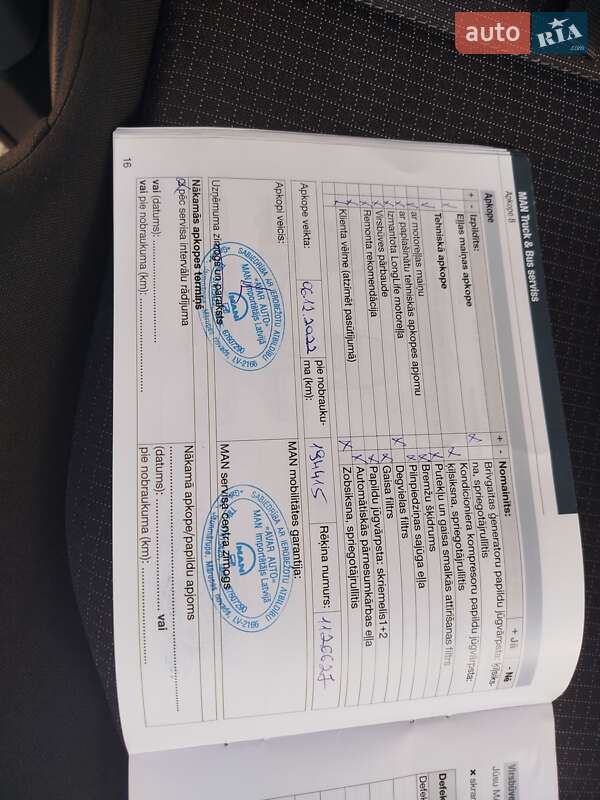 auto RIA.com
MAN Truck & Bus serviss
Apkope B
Apkope
+ - Izpildīts:
Eļļas maiņas apkope
Tehniskā apkope
ar motoreļļas maiņu
ar paplašinātu tehniskās apkopes apjomu
Izmantota LongLife motoreļļa
Virsbūves pārbaude
Remonta rekomendācija
Klienta vēlme (atzīmēt pasūtījumā)
+ Jā - Nē
+ - Nomainīts:
Brīvgaitas ģeneratoru papildu jūgvārpsta: ķīlsiks-
na, spriegotājrullītis
Kondicioniera kompresoru papildu jūgvārpsta:
ķīlsiksna, spriegotājrullītis
Putekļu un gaisa smalkās attīrīšanas filtrs
Bremžu šķidrums
Pilnpiedziņas sajūga eļļa
Degvielas filtrs
Gaisa filtrs
Papildu jūgvārpsta: skriemelis1+2
Automātiskās pārnesumkārbas eļļa
Zobsiksna, spriegotājrullītis
Apkope veikta: 06.12.2022
pie nobrauku-
ma (km): 194415
Rēķina numurs: 1126627
Apkopi veicis:
SABIEDRĪBA AR IEROBEŽOTU ATBILDĪBU
«AVAR AUTO»
MAN importētājs Latvijā
67607290
MAN
LV-2166
Uzņēmuma zīmogs un paraksts
MAN mobilitātes garantija:
SABIEDRĪBA AR IEROBEŽOTU ATBILDĪBU
«AVAR AUTO»
MAN importētājs Latvijā
67607290
MAN
LV-2166
MAN servisa centra zīmogs
Nākamās apkopes termiņš
pēc servisa intervālu rādījuma
vai (datums):
vai pie nobraukuma (km):
Nākamā apkope/papildu apjoms
vai
(datums):
pie nobraukuma (km):
16
Virsbūve
Jūsu M
x skra
Defek
Defe